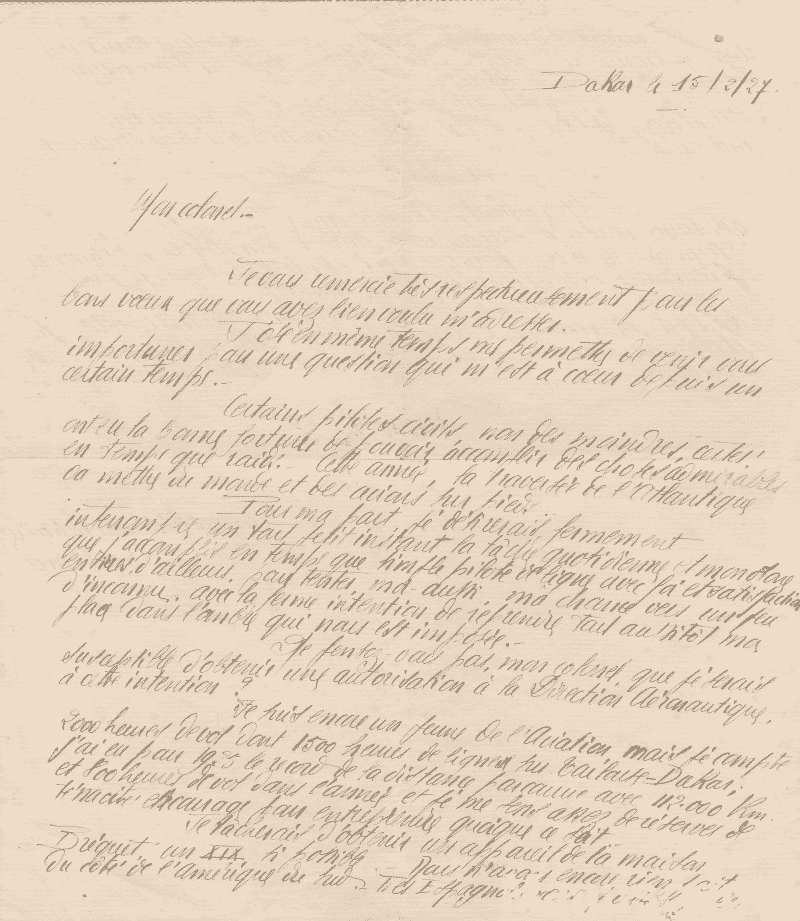 Dakar le 15/2/27.
Mon colonel.-
Je vous remercie très respectueusement pour les
bons vœux que vous avez bien voulu m'adresser.-
J'ose en même temps me permettre de venir vous
importuner pour une question qui m'est à cœur depuis un
certain temps.-
Certains pilotes civils non des moindres, certes!
ont eu la bonne fortune de pouvoir accomplir des choses admirables
en temps que raids.- Cette année, la traversée de l'Atlantique
va mettre du monde et des avions sur pieds.
Pour ma part je désirerais fermement
interrompre un tout petit instant la tâche quotidienne et monotone
que j'accomplis en temps que simple pilote de ligne avec foi et satisfaction
entières d'ailleurs, pour tenter, moi aussi, ma chance vers un peu
d'inconnu, avec la ferme intention de reprendre tout aussitôt ma
place dans l'ombre qui nous est imposée.-
Ne pensez-vous pas, mon colonel que je serais
susceptible d'obtenir une autorisation à la Direction Aéronautique,
à cette intention ?
Je suis encore un jeune de l'Aviation mais je compte
2000 heures de vol dont 1500 heures de lignes sur Toulouse-Dakar;
j'ai eu pour 19 le record de la distance parcourue avec 112.000 Km.
et 800 heures de vol dans l'année et je me sens assez de réserves de
ténacité et courage pour entreprendre quoique ce soit
Je tâcherais d'obtenir un appareil de la maison
Bréguet un XIX si possible Rien n'a encore rien
du côté de l'amérique du sud.- Les Espagnols